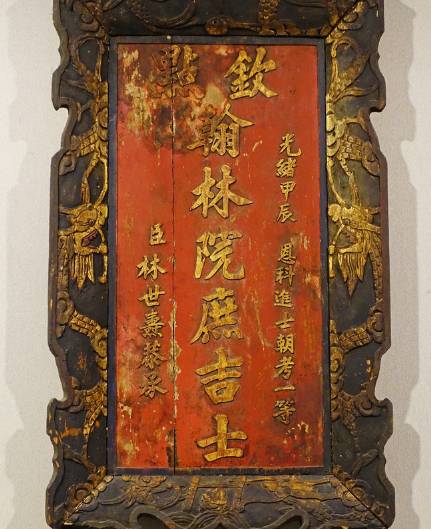 欽點
翰林院庶吉士
光緒甲辰 恩科進士朝考一等
臣林世燾恭承